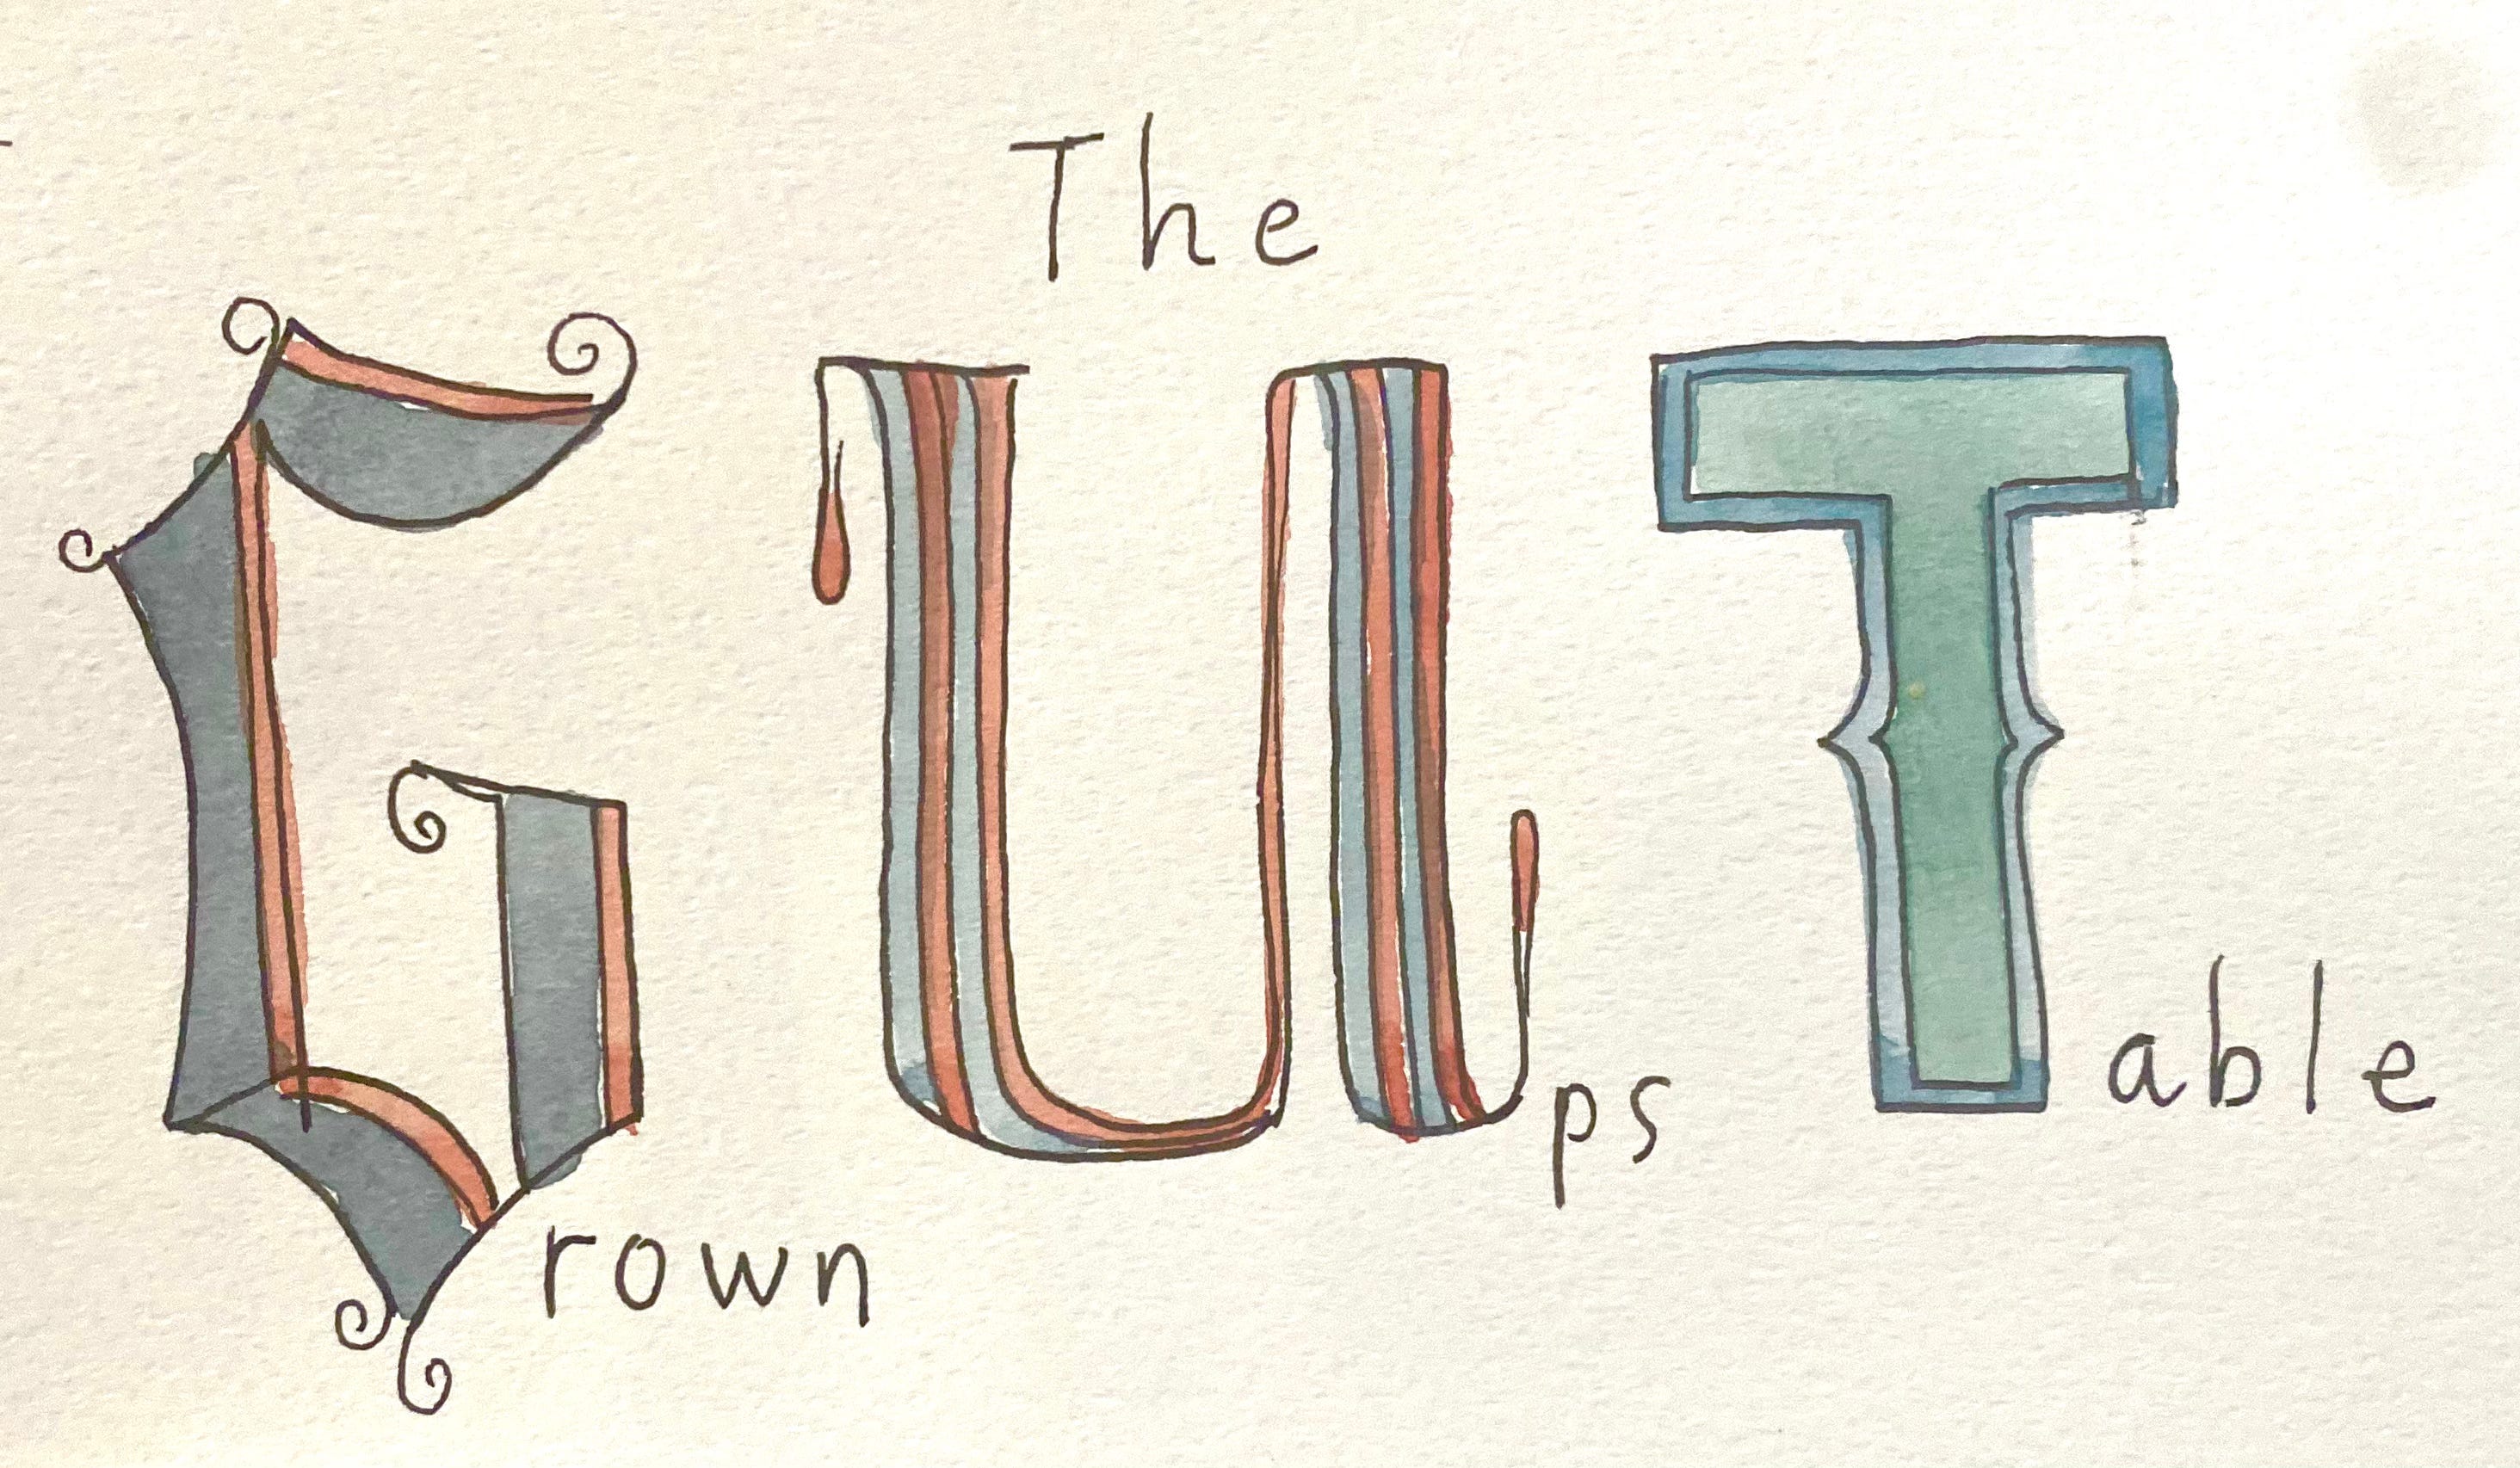 The
Grown Ups Table